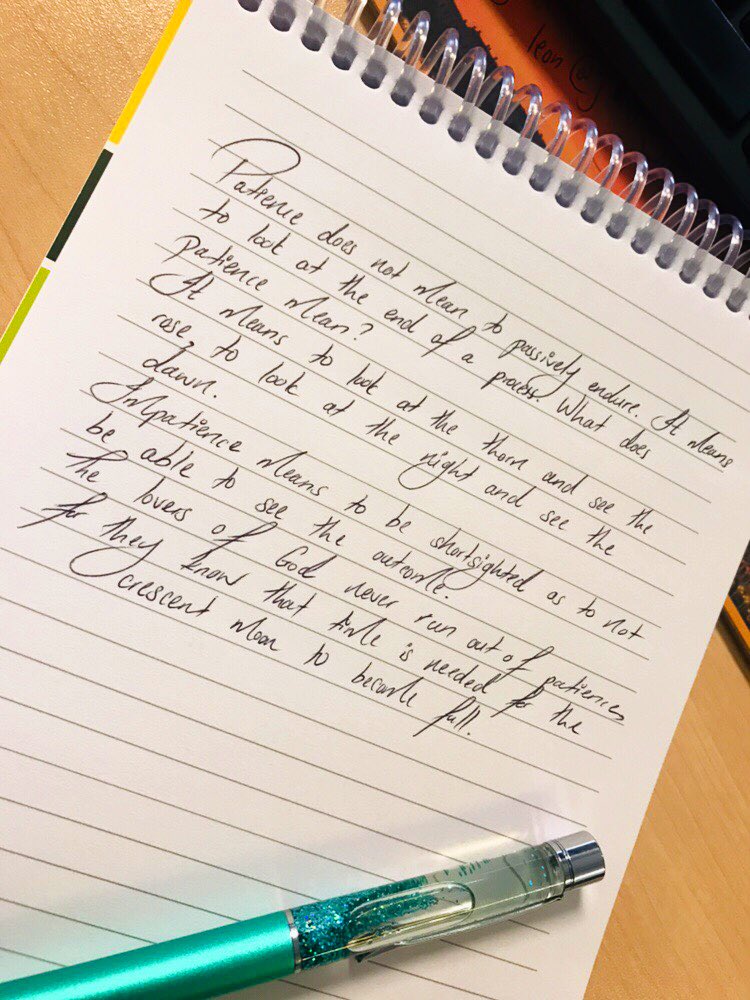 leon @
Patience does not mean to passively endure. It means
to look at the end of a process. What does
patience mean?
It means to look at the thorn and see the
rose, to look at the night and see the
dawn.
Impatience means to be shortsighted as to not
be able to see the outcome.
The lovers of God never run out of patience,
for they know that time is needed for the
crescent moon to become full.